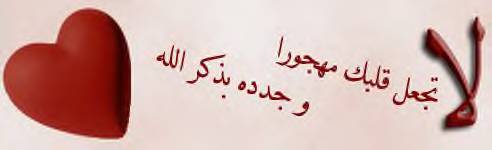 لا تجعل قلبك مهجورا
و جدده بذكر الله